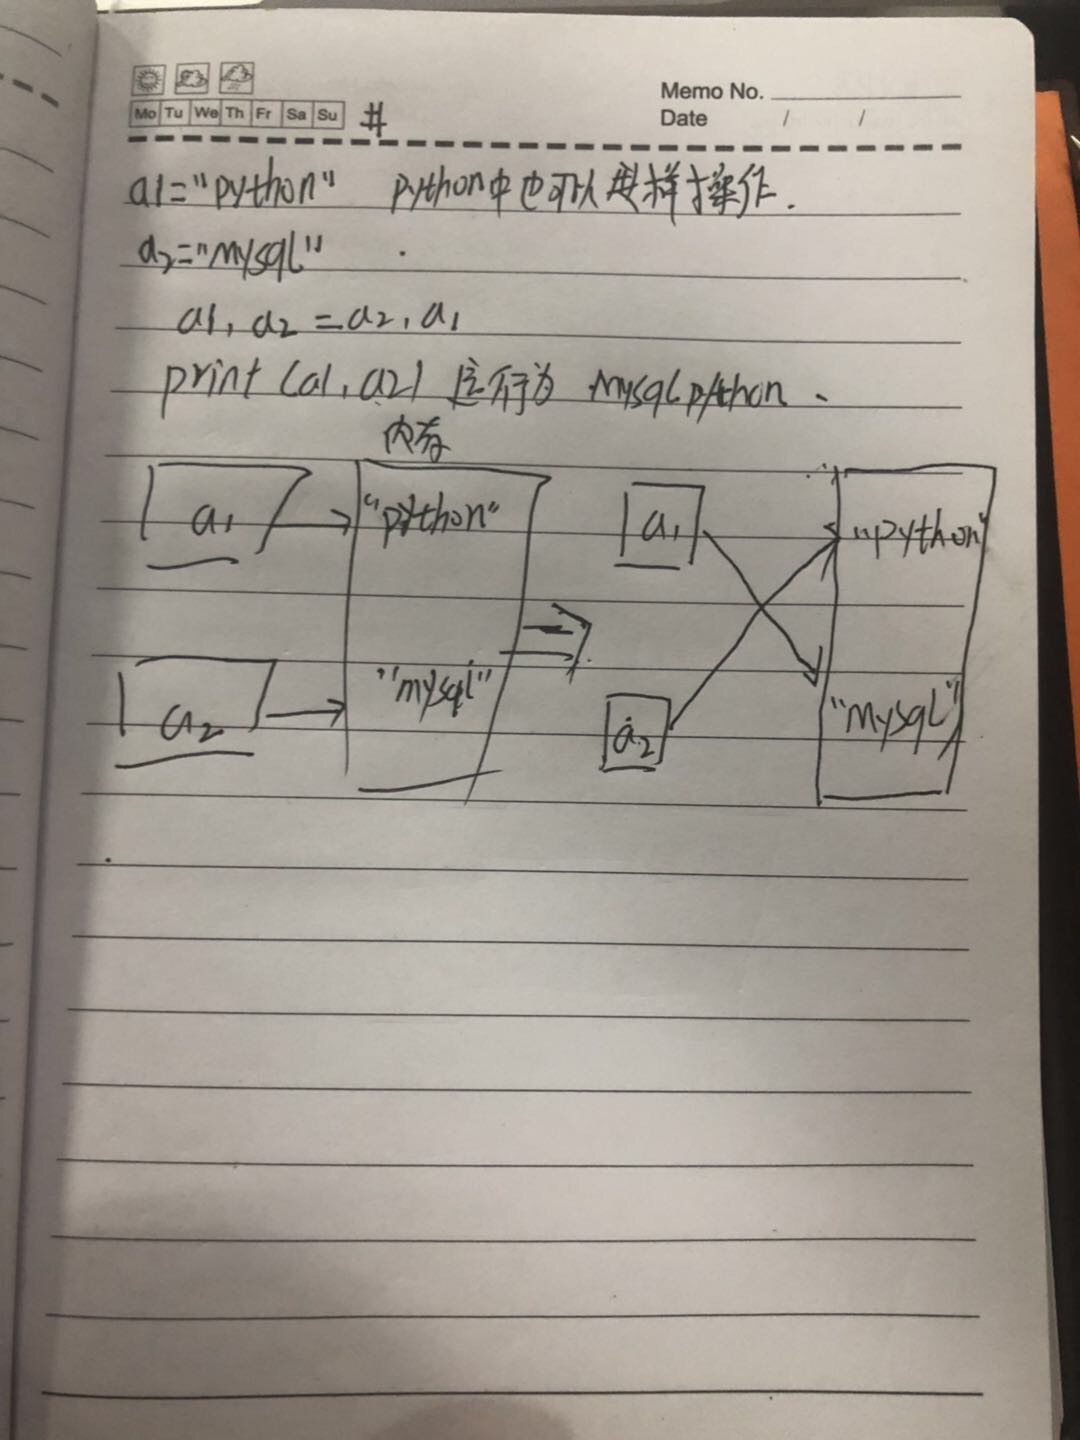 Memo No.
Mo Tu We Th Fr Sa Su #
Date / /
a1="python" python中也可以这样操作.
a2="mysql"
a1, a2 = a2, a1
print (a1, a2) 运行为 mysql python
内存
a1 "python" a1 "python"
a2 "mysql" a2 "mysql"